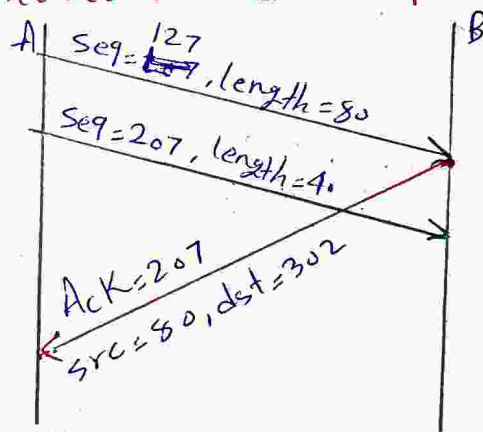 A
B
127
Seq=, length=80
Seq=207, length=40
Ack=207
src=80, dst=302